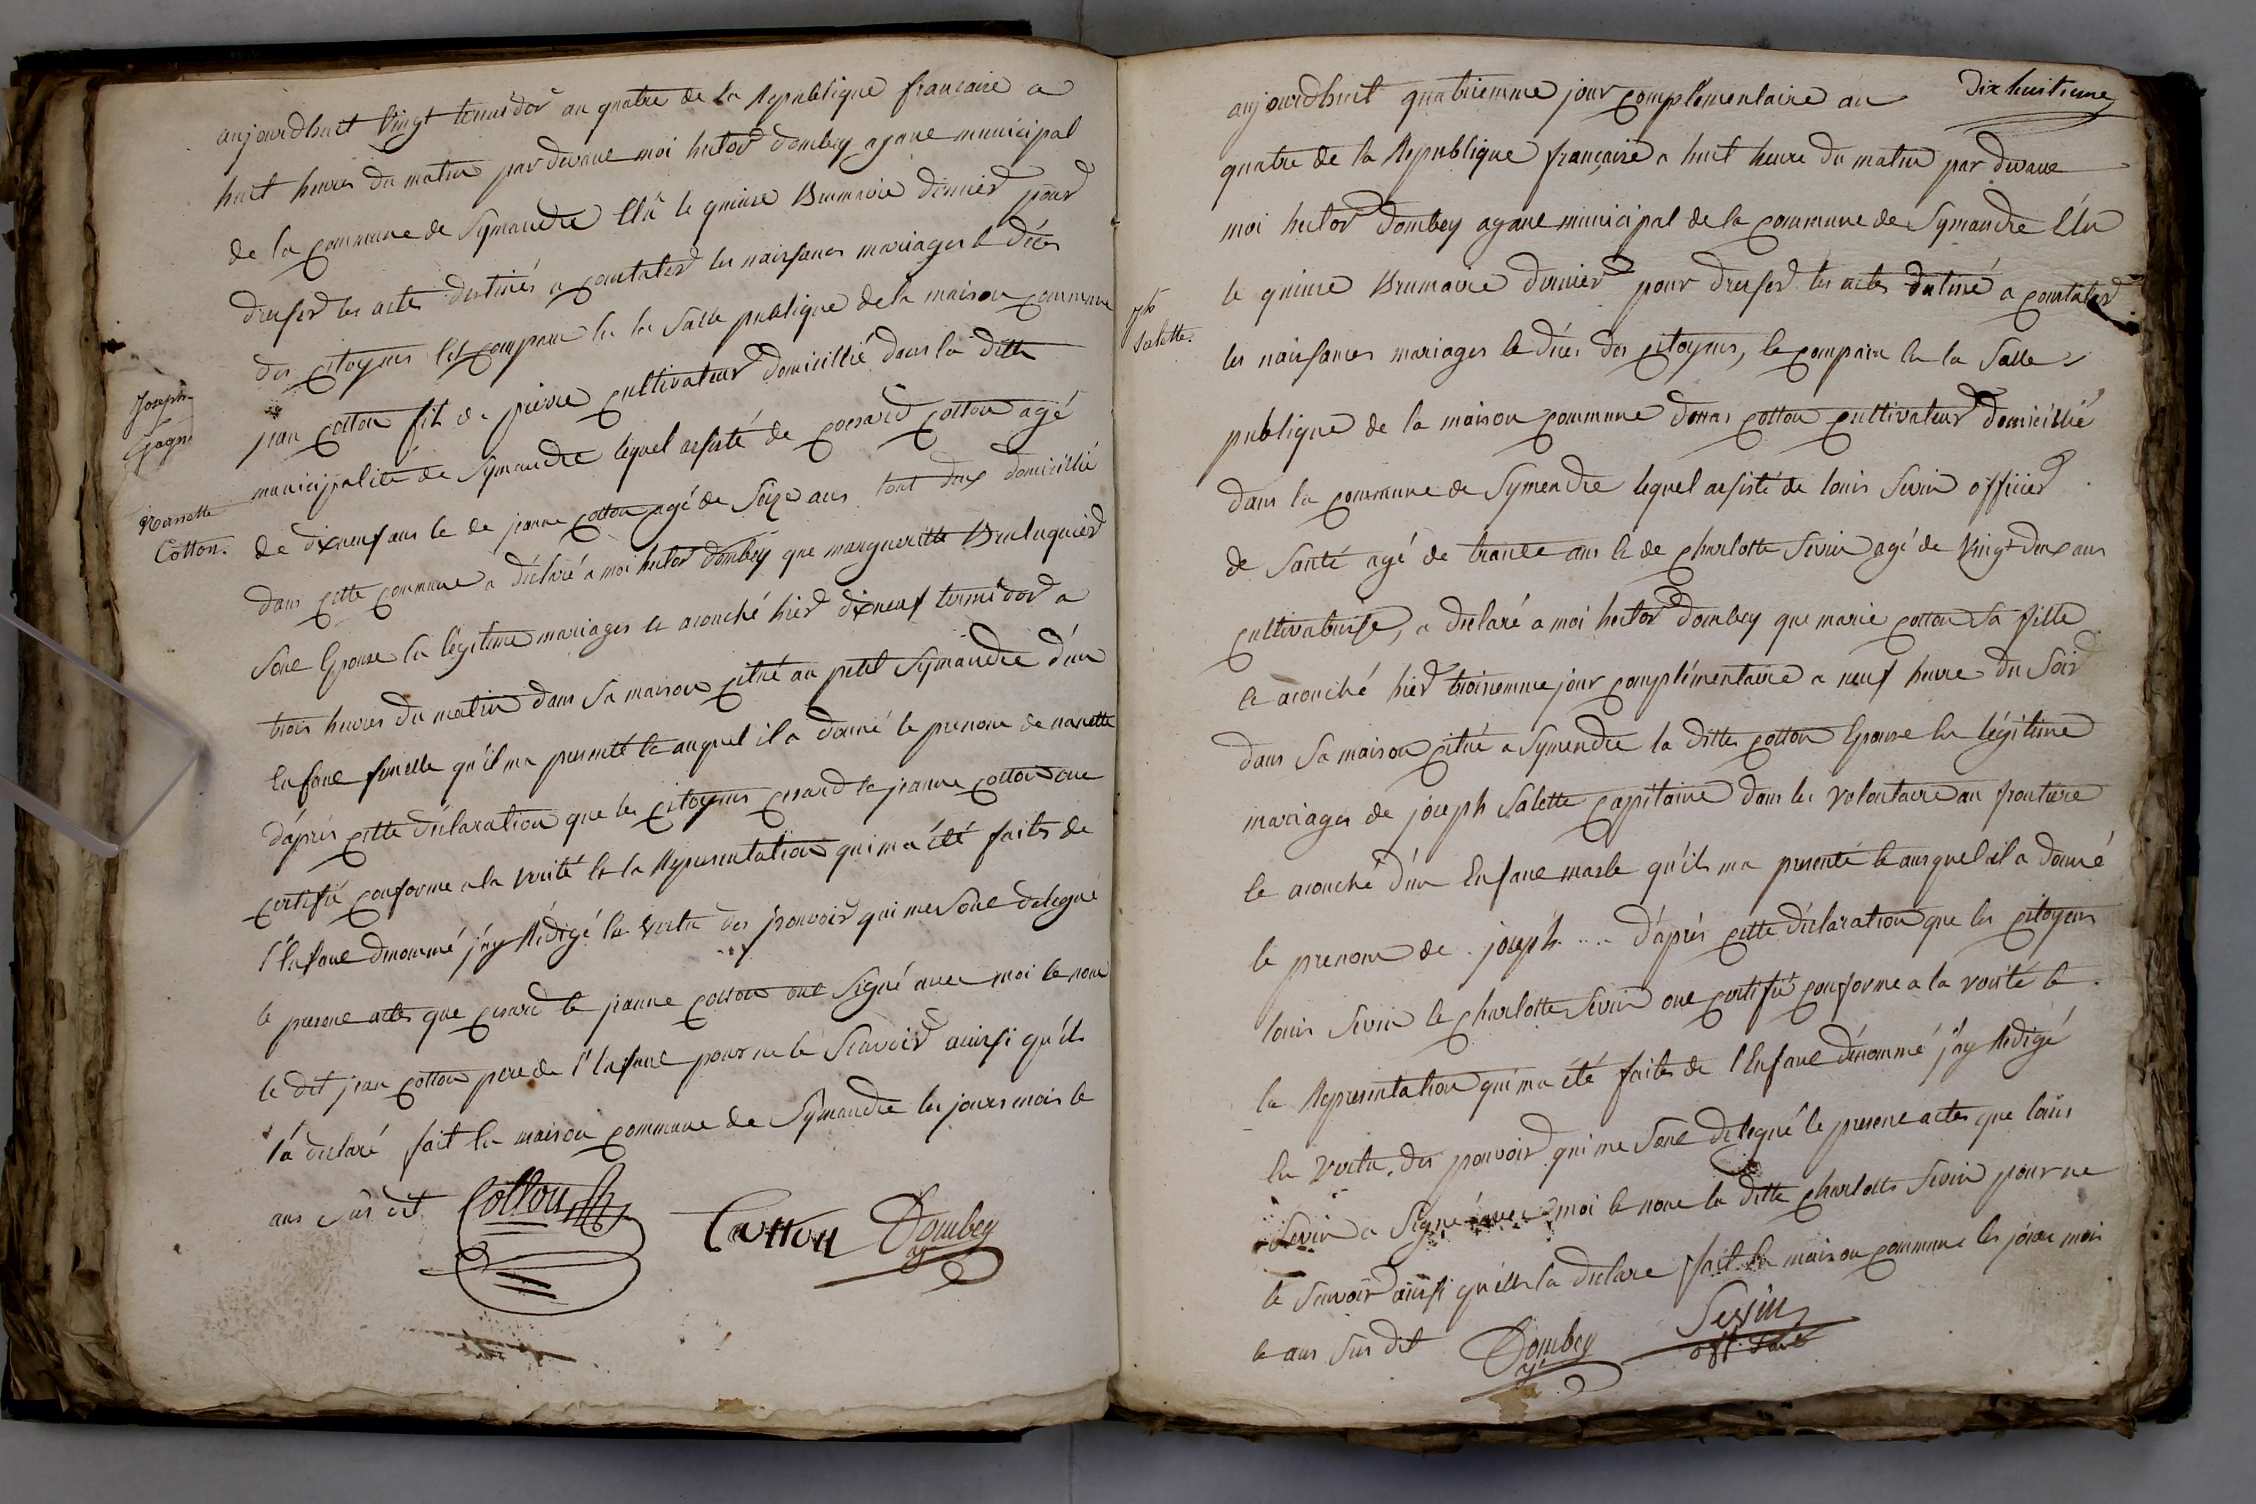 aujourdhuit Vingt termidor an quatre de la Republique francaise a
huit heures du matin par devane moi hector Dombey agane municipal
de la commune de Symandre Elû le quinse Brumaire dernier pour
dresser les actes destinés a constater les naissances mariages et déces
des citoyens est comparu en la Salle publique de la maison commune
jean cotton fils de pierre cultivateur domicillié dans la ditte
municipalité de Symandre lequel assisté de cotton agé
de dixneuf ans et de jeanne cotton agé de Seize ans tout deux domicillié
dans cette commune a déclaré a moi hector Dombey que margueritte
Sone Epouse en legitime mariages et acouché hier dixneuf termidor a
trois heures du matin dans Sa maison citué au petit Symandre d'un
Enfane fimelle qu'il ma presenté et auquel il a donné le prenom de nanette
d'apres cette déclaration que les citoyens et jeanne cotton one
certifié conforme a la verité et la Representation qui ma été faites de
l'Enfane denommé j'ay Rédigé en vertu des pouvoir qui me Sone delegué
le presene actes que et jeanne cotton one Signé avec moi et none
le dit jean cotton pere de l'Enfane pour ne le Scavoir ainsi qu'il
l'a declaré fait en maison commune de Symandre les jours mois et
ans Sus dit Cotton Cotton Dombey
ag
Joseph
Gagne
Nanette
Cotton.
Dix huitieme
aujourdhuit quatriemme jour complementaire an
quatre de la Republique française a huit heure du matin par devane
moi hector Dombey agane municipal de la commune de Symandre Elu
le quinse Brumaire dernier pour dresser les actes destiné a constater
les naissances mariages et déces des citoyens, et comparu en la Salle
publique de la maison commune cotton cultivateur domicillié
dans la commune de Symendre lequel assisté de louis Sevin officier
de Santé agé de trante ans et de charlotte Sevin agé de Vingt deux ans
cultivatrise, a declaré a moi hector Dombey que marie cotton Sa fille
et acouché hier troisiemme jour complémentaire a neuf heure du Soir
dans Sa maison citué a Symendre la ditte cotton Epouse en légitime
mariages de joseph Salette capitaine dans les volontaire au frontiere
et acouché d'un Enfane masle qu'il ma presenté et auquel il a donné
le prenom de joseph .... d'apres cette déclaration que les citoyens
louis Sevin et charlotte Sevin one certifié conforme a la verité et
la Representation qui ma été faites de l'Enfane dénommé j'ay Rédigé
En vertu des pouvoir qui me Sone delegué le presene actes que louis
Sevin a Signé avec moi et none la ditte charlotte Sevin pour ne
le Scavoir ainsi qu'elle la declare fait En maison commune les jours mois
et ans Sus dit Dombey Sevin
ag off. Santé
jph
Salette.